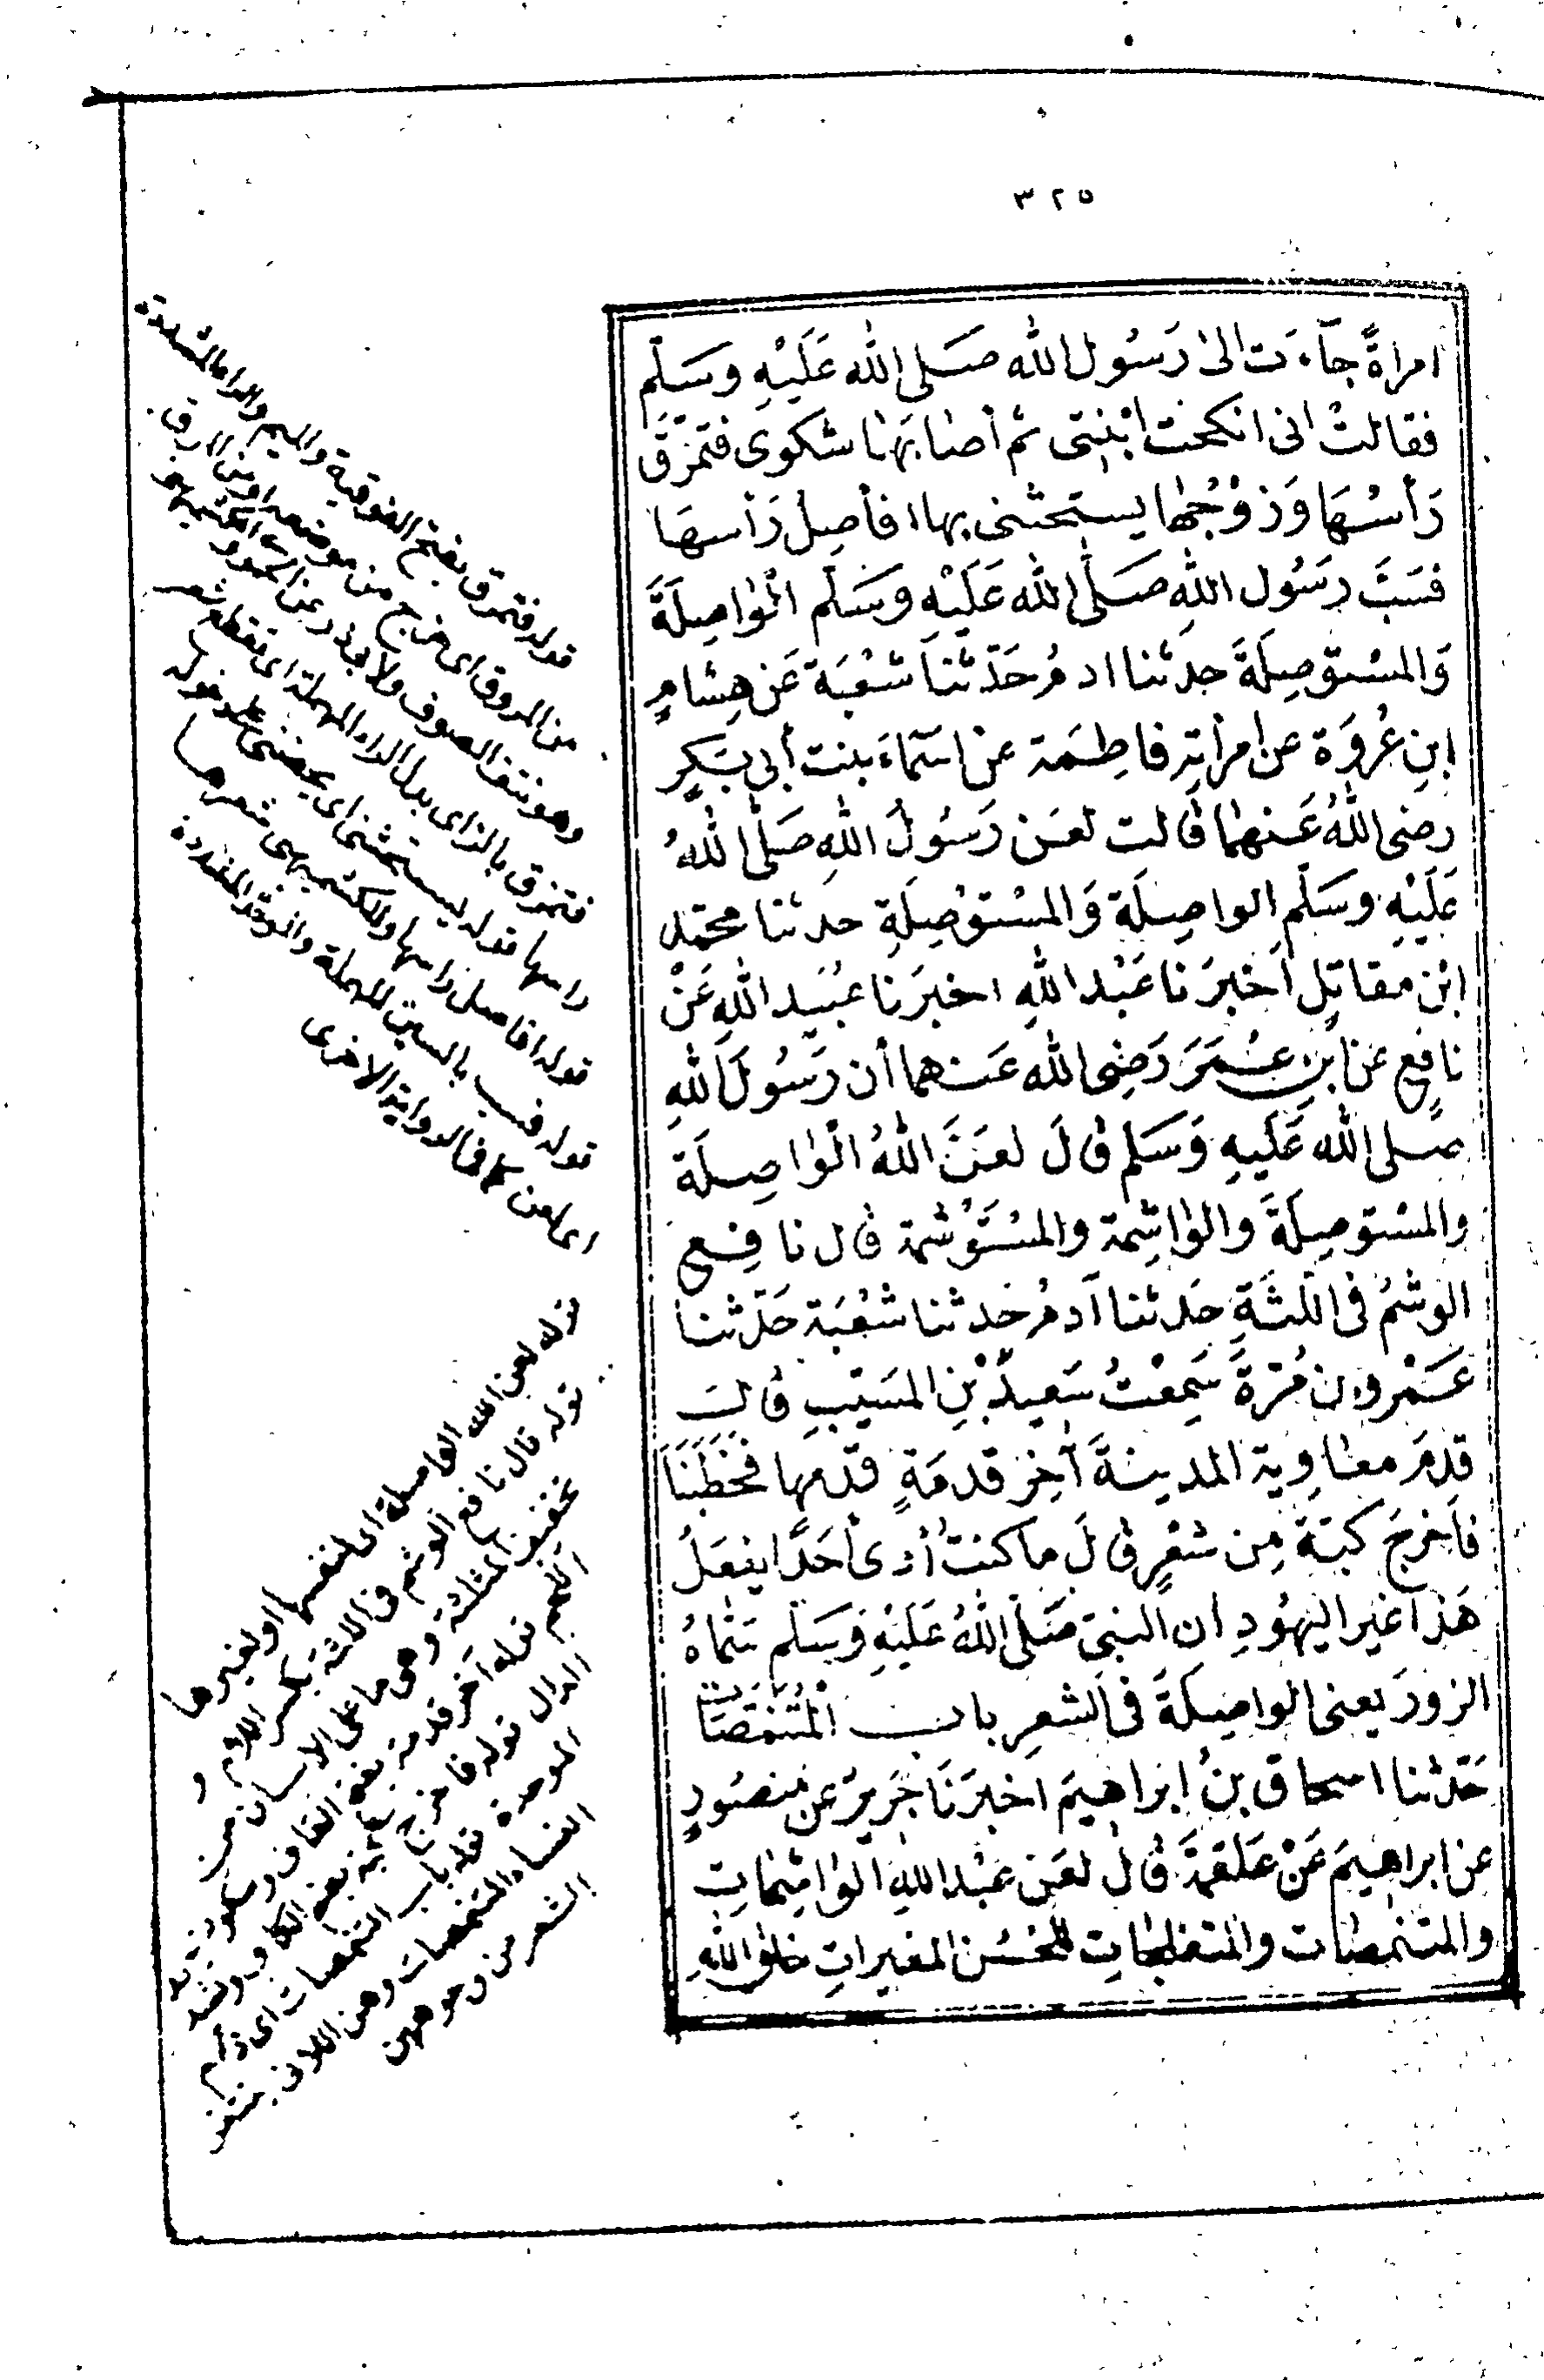 ٣٢٥
امرأةً جآءت الىٰ رَسُول الله صَلى الله عَلَيْهِ وَسَلّم
فقالتْ انى انكحت ابْنتِى ثم أصَابَهَا شكوى فتمزّقَ
رَأسُهَا وَزَوْجُهَا يستحثنى بها افأصِلُ رَأسهَا
فسَبَّ رسَُول اللهِ صَلَّى الله عَلَيْهِ وَسَلّم الوَاصِلَةَ
وَالمسْتَوصِلَةَ حدثنا ادمُ حَدّثنَا شُعْبَة عَن هِشامٍ
ابنِ عُروَة عن امرأتِهِ فاطِمَة عن اسَمَاءَ بنت أبى بَكرٍ
رضى اللهُ عَنهمَا قالت لعَن رَسُولُ اللهِ صَلّى اللهُ
عَلَيْهِ وسَلّم الواصِلَة وَالمسْتوْصِلَةِ حدثنا محمّد
ابْن مقاتِل اَخبرَنا عَبْد اللهِ اخبرَنا عُبَيد اللهِ عَنْ
نافِعٍ عَن ابنِ عُمَرَ رَضِىَ الله عَنهما أن رَسُولَ اللهِ
صَلى الله عَلَيهِ وَسَلّم قالَ لعَنَ اللهُ الوَاصِلَة
والمسْتوصِلَةَ والوَاشِمة والمسْتَوْشمة قال نافِع
الوشمُ فى اللّثَةِ حَدثنا آدمُ حَدثنا شُعْبَة حَدّثنا
عَمْرو بن مُرّةَ سَمِعْتُ سَعِيدَ بْنِ المسَيّبِ قالَ
قدِمَ معَاوِية المدينةَ آخِرَ قدمَةٍ قدمها فخطَبَنَا
فاَخرجَ كبّةً مِن شعْرٍ قالَ ماكنتُ أرى أحَدًا يفعَلُ
هَذا غير اليَهُودِ ان النبىّ صَلّى اللهُ عَلَيْهِ وَسَلّم سَمّاهُ
الزورَ يعنى الواصِلَةَ فى الشعرِ باب المُتَنَمّصَات
حَدّثنا اسحاق بنُ ابراهِيمَ اخبَرَنَا جَرِيرٌ عن منصُورٍ
عن ابراهِيمَ عَنْ عَلقمَةَ قالَ لعَن عَبْد اللهِ الوَاشِمَاتِ
والمتنمصَات والمتفلجَاتِ للحُسْن المغيراتِ خلق اللهِ
قوله فتمرق بفتح الفوقية والميم والراء المشددة
من المروق اى خرج من موضعه او من المرق
وهو نتف الصوف ولأبى ذر عن الحموى و الكشميهنى
فتمزق بالزاى بدل الراء المهملة اى تقطع شعر
راسها قوله يستحثنى اى يحضنى على دخوله
قوله افاصل راسها وللكشميهنى شعرها
قوله فسب بالسين المهملة والموحدة المشددة
اى لعن كما فى الرواية الاخرى
قوله لعن الله الواصلة اى لنفسها او لغيرها
قوله قال نافع الوشم فى اللثة بكسر اللام و
تخفيف المثلثة وهى ما على الاسنان من
اللحم قوله آخر قدمة بفتح القاف وسكون
الدال قوله فاخرج كبة بضم الكاف وتشديد
الموحدة قوله باب المتنمصات اى ذم
النساء المتنمصات وهن اللاتى ينتفن
الشعر من وجوههن